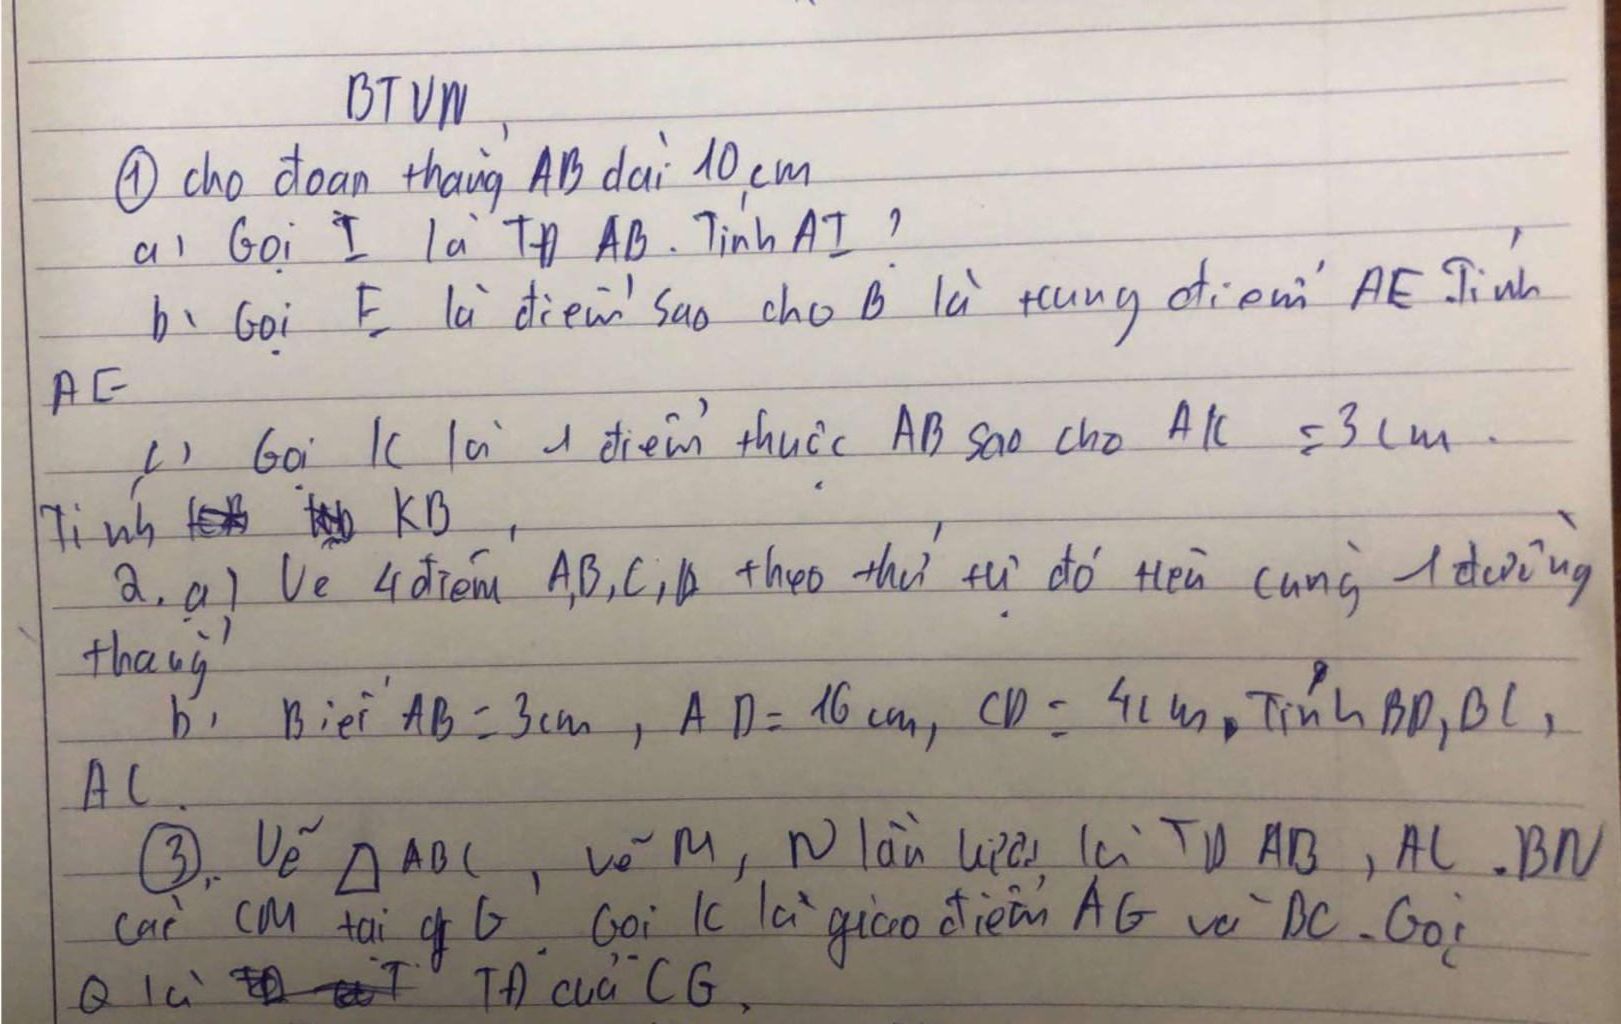 BTVN
① cho đoạn thẳng AB dài 10 cm
a) Gọi I là TĐ AB. Tính AI ?
b) Gọi E là điểm sao cho B là trung điểm AE Tính
AE
c) Gọi K là 1 điểm thuộc AB sao cho AK = 3 cm.
Tính KB
2. a) Vẽ 4 điểm A,B,C,D theo thứ tự đó trên cùng 1 đường
thẳng
b) Biết AB = 3cm, AD = 16 cm, CD = 4cm. Tính BD, BC,
AC.
③. Vẽ △ ABC, vẽ M, N lần lượt là TĐ AB, AC. BN
cắt CM tại G. Gọi K là giao điểm AG và BC. Gọi
Q là TĐ của CG.